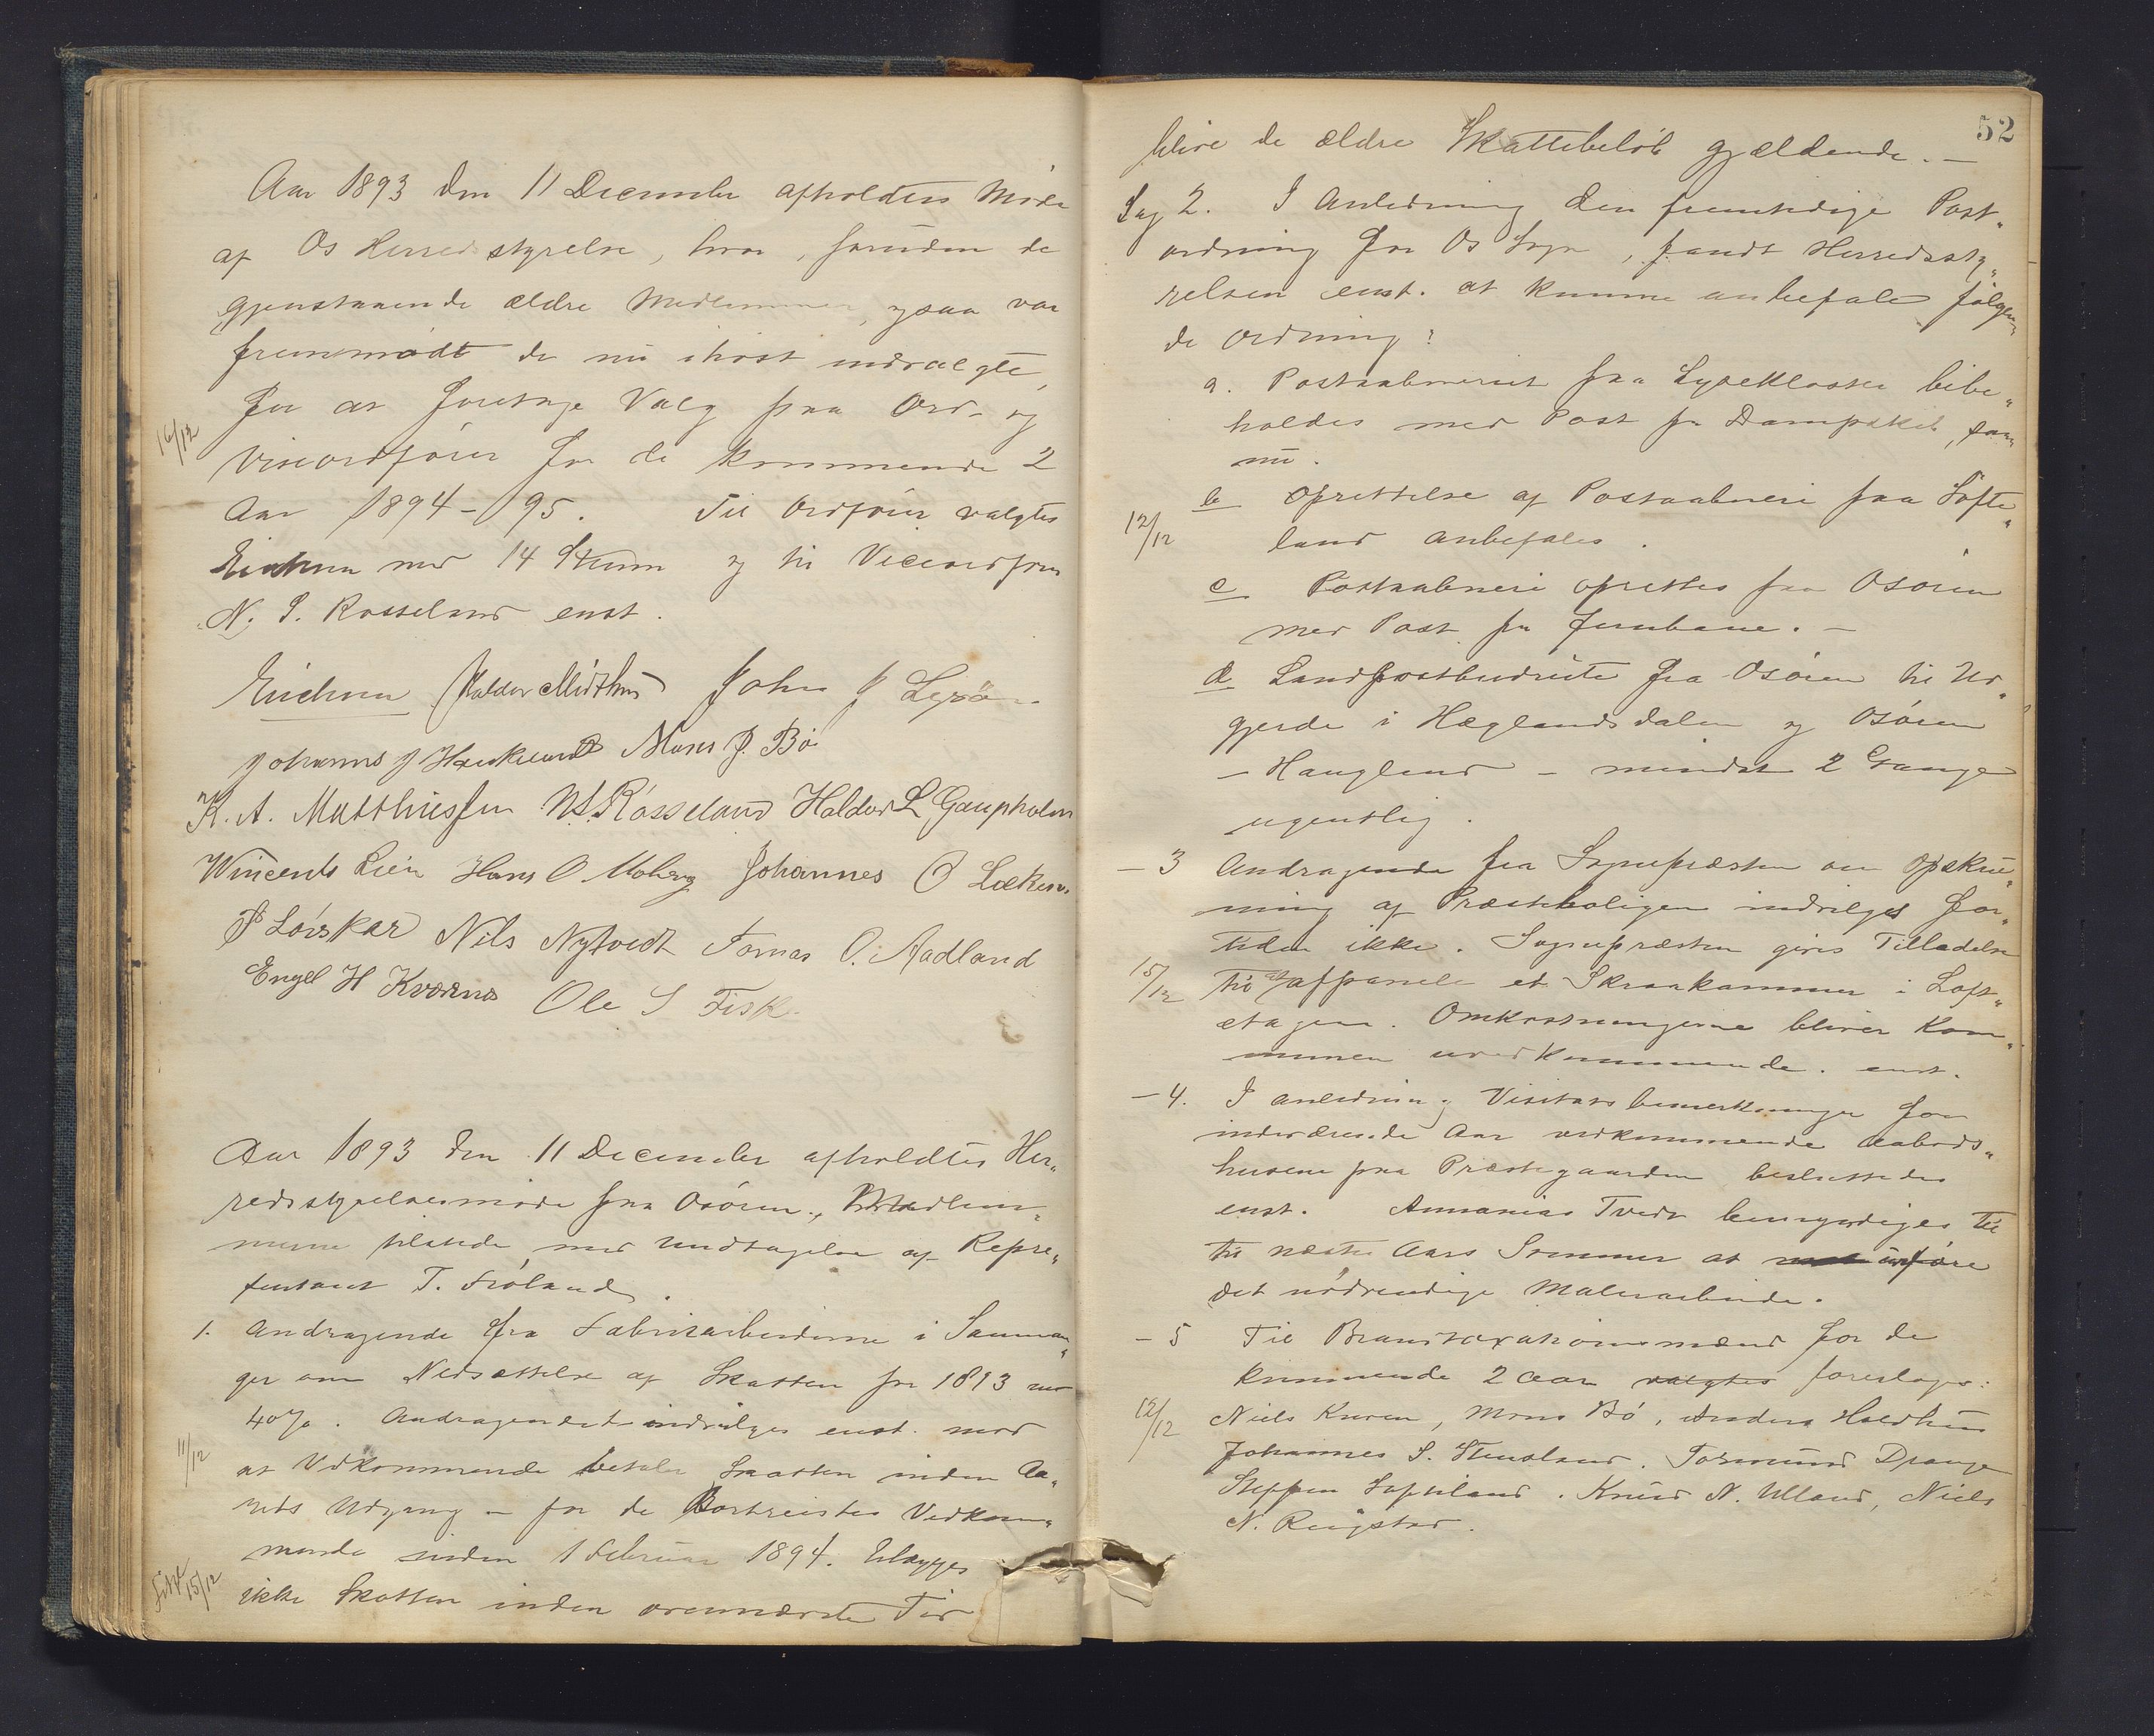 Aar 1893 den 11 December afholdtes Møde
af Os Herredsstyrelse, hvor, foruden de
gjenstaaende ældre Medlemmer, ogsaa var
fremmødt de nu ihøst indvalgte,
for at foretage Valg paa Ord- og
16/12
Viceordfører for de kommende 2
Aar 1894-95. Til Ordfører valgtes
Eichum med 14 Stemm og til Viceordfører
N. S. Rosseland enst.
Haldor Midthus John J Lepsø
Johannes J Haukeland Mons J. Bø
K. A. Matthiessen N. S. Rosseland Haldor L Gaupholm
Wincents Lien Hans O Moberg Johannes O Lekven
Løvskar Nils Nytvedt Tomas O. Aadland
Engel H Kværnes Ole S Fisk
Aar 1893 den 11 December afholdtes Her„
redsstyrelsesmøde paa Osøren, Medlem„
merne tilstede med Undtagelse af Repre„
sentant T. Frøland.
1. Andragende fra Fabrikarbeiderne i Samnan„
ger om Nedsættelse af Skatten for 1893 med
40%. Andragendet indvilges enst. mod
11/12
at Vedkommende betaler Skatten inden Aa„
rets Udgang – for de Bortreistes Vedkom„
mende inden 1 Februar 1894. Erlægges
15/12
ikke Skatten inden ovennævnte Tid
52
blive de ældre Skattebeløb gjældende. –
Sag 2. I Anledning den fremtidige Post„
ordning for Os Sogn, fandt Herredssty„
relsen enst. at kunne anbefale følgen„
de Ordning:
a. Postaabneriet paa Lysekloster bibe„
holdes med Post pr Dampskib, som
nu.
b Oprettelse af Postaabneri paa Søfte„
12/12
land anbefales.
c Postaabneri oprettes paa Osøren
med Post pr Jernbane. –
d Landpostbudrute fra Osøren til Ud„
gjerde i Hæglandsdalen og Osøren
– Hauglend – mindst 2 Gange
ugentlig.
– 3 Andragende fra Sognepræsten om Opskri„
ning af Præsteboligen indvilges for„
tiden ikke. Sognepræsten gives Tilladelse
15/12
til at afpanele et Skraakammer i Loft„
etagen. Omkostningerne bliver Kom„
munen uvedkommende. enst.
– 4. I anledning Visitatsbemerkninger for
indeværende Aar vedkommende Aabods„
husene paa Præstegaarden besluttedes
enst. Annanias Tvedt bemyndiges til
til næste Aars Sommer at udføre
det nødvendige Malerarbeide.
– 5 Til Brandtaxationsmænd for de
kommende 2 Aar valgtes foreslages:
12/12
Niels Kuven, Mons Bø, Anders Holdhus
Johannes S. Stensland. Tormund Drange
Steffen Søfteland. Knud N. Ulland, Niels
N. Røigstad.